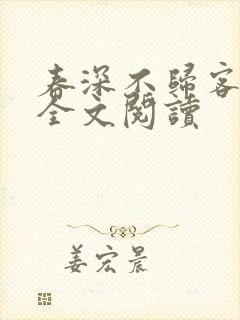 春深不歸客
全文閱讀
姜宏晨